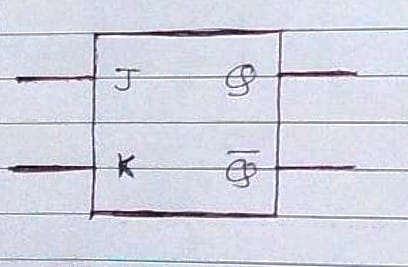 J Q
K Q̅